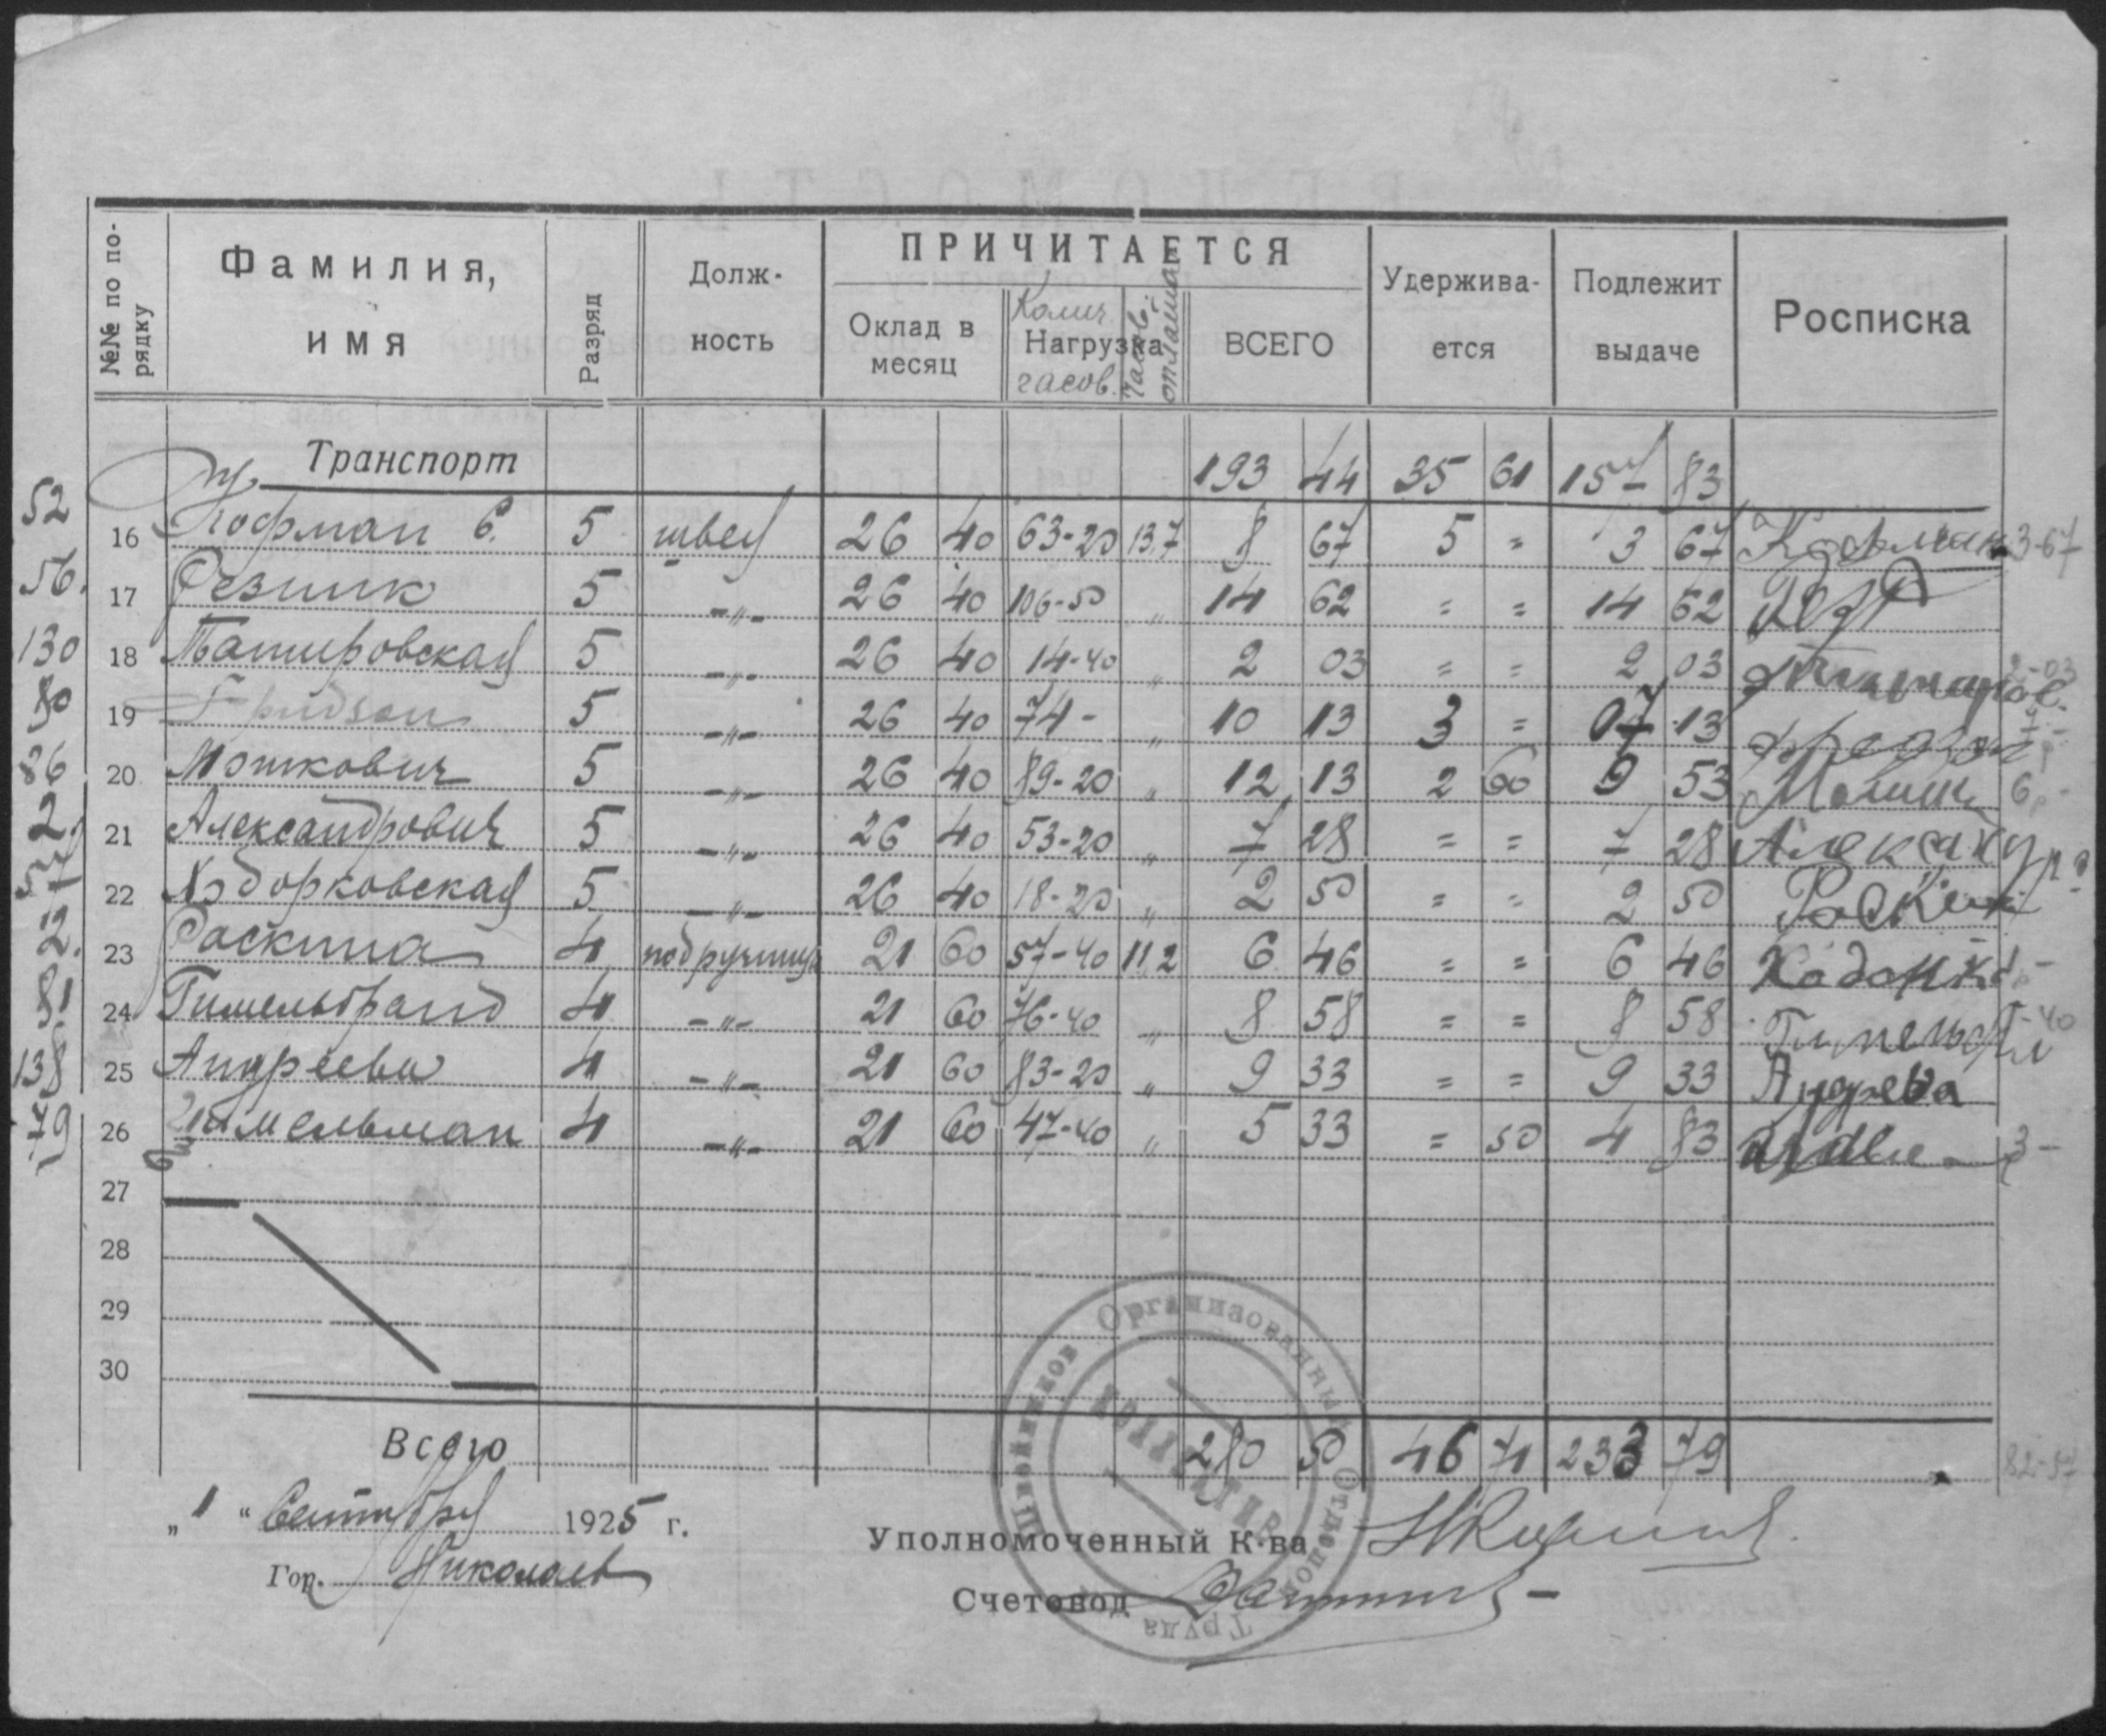 №№ по по-рядку Фамилия, имя Разряд Долж-ность ПРИЧИТАЕТСЯ Удержива-ется Подлежит выдаче Росписка
Оклад в месяц Колич. Нагрузка часов. Часов. оплата ВСЕГО
Транспорт 193 44 35 61 157 83
52 16 Кофман С. 5 швея 26 40 63-20 13,7 8 67 5 = 3 67 Кофман 3-67
56. 17 Резник 5 -"- 26 40 106-50 " 14 62 = = 14 62
130 18 5 -"- 26 40 14-40 " 2 03 = = 2 03 2-03
80 19 5 -"- 26 40 74- " 10 13 3 = 07 13
86 20 Мошкович 5 -"- 26 40 89-20 " 12 13 2 60 9 53
2. 21 Александрович 5 -"- 26 40 53-20 " 7 28 = = 7 28 Александр
57 22 Ходорковская 5 -"- 26 40 18-20 " 2 50 = = 2 50 Раскин
2. 23 Раскина 4 подручница 21 60 57-40 11,2 6 46 = = 6 46
81 24 Гимельбранд 4 -"- 21 60 76-40 " 8 58 = = 8 58
138 25 Андреева 4 -"- 21 60 83-20 " 9 33 = = 9 33 Андрева
79 26 4 -"- 21 60 47-40 " 5 33 = 50 4 83 3-
27
28
29
30
Всего 280 50 46 71 233 79 82-57
„ 1 “ Сентября 1925 г.
Уполномоченный К-ва
Гор. Николаев
Счетовод
Швейников Организованный Отделом Труда
КОЛЛЕКТИВ